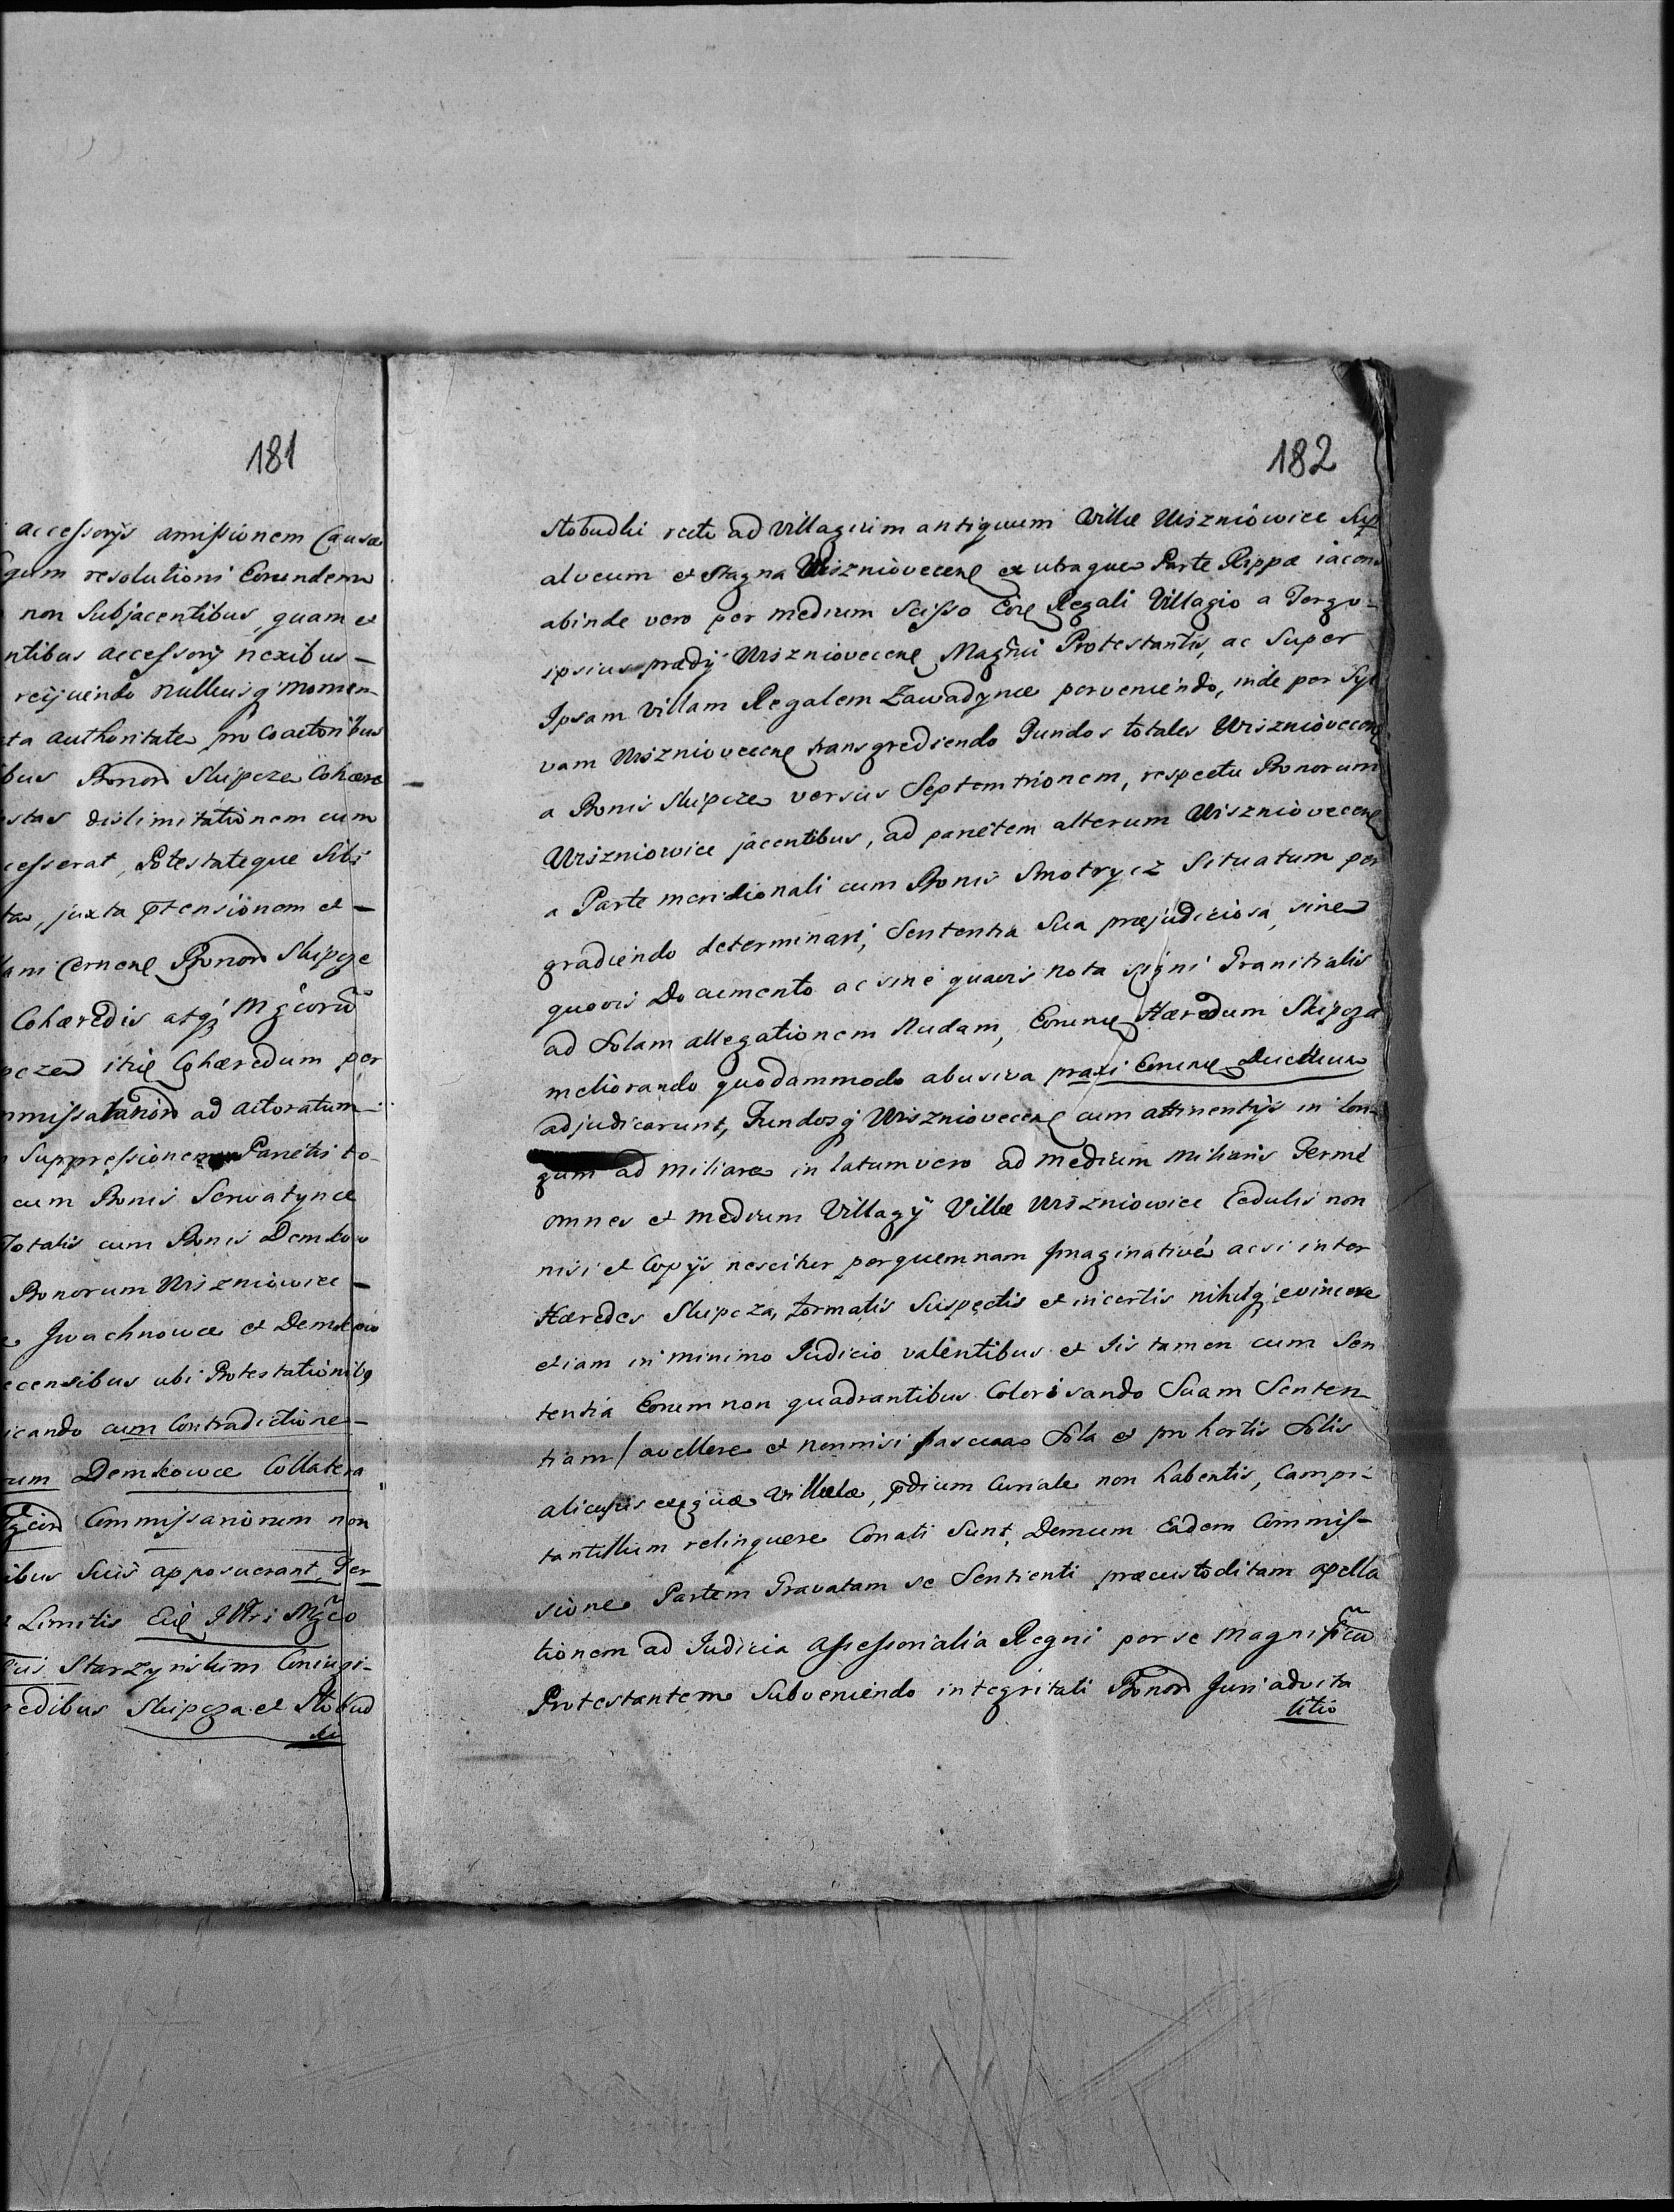 181
accessorys amissionem Causæ
quam resolutioni Eorundem
non Subjacentibus, quam et
ntibus accessory nexibus –
reijciendo nulliusq momen-
ta authoritate pro Coactoribus
bus Bonor Skipcze Cohære
stas dislimitationem cum
cesserat, Potestateque Sibi
tas, juxta ptensionem et –
ani Cernene Bonor Skipcze
Cohæredis atq Mgcorũ
pcze itie Cohæredum per
mmissariorũ ad actoratum
Suppressionem Parietis to-
cum Bonis Serwatynce
Totalis cum Bonis Demkow
Bonorum Wiszniowice –
Iwachnowce et Demkow
ecensibus ubi Protestationibq
icando cum Contradictione –
rum Demkowce Collatera
Mgcor Commissariorum non
ibus Suis apposuerant, Ter-
Limitis Eiĕ Illri Mgco
Starzynskim Coniugi-
redibus Skipcza et Stobud
ki
182
Stobudki recte ad villagium antiquum Villæ Wiszniowice Sup
alveum et Stagna Wisznioveceñ ex utraque Parte Rippæ iacen
abinde vero per medium Scisso Eoĕ Regali Villagio a Tergo-
ipsius prædij Wisznioveceñ Magñci Protestantis, ac Super
Ipsam Villam Regalem Zawadynce perveniendo, inde per Syl
vam Wisznioveceñ transgrediendo Fundos totales Wiszniovecen
a Bonis Skipcze versus Septemtrionem, respectu Bonorum
Wiszniowice jacentibus, ad parietem alterum Wisznioveceñ
a Parte meridionali cum Bonis Smotrycz Situatum per
gradiendo determinari, Sententia Sua præjudiciosa, sine
quovis Documento ac sine quavis nota signi Granitialis
ad Solam allegationem Nudam, Eorune Hæredum Skipcza
meliorando quodammodo abusiva praxi Eorune Ductum
adjudicarunt, Fundosq Wisznioveceñ cum attinentijs in lon-
gum ad miliare in latum vero ad medium miliaris Fermé
omnes et medium Villagij Villæ Wiszniowice Cedulis non
nisi et Copijs nescitur perquemnam Imaginativé acsi inter
Hæredes Skipcza, formatis Suspectis et incertis nihilq evincere
etiam in minimo Iudicio valentibus et Iis tamen cum Sen
tentia Eorum non quadrantibus Colorisando Suam Senten
tiam / avellere et nonnisi pascuas Sola et pro hortis Solis
alicujus exiguæ Villulæ, pdium Curiale non habentis, Campi-
tantillum relinquere Conati Sunt, Demum Eadem Commis-
sione Partem Gravatam se Sentienti præcustoditam apella
tionem ad Iudicia Assessorialia Regni per se Magnificũ
Protestantem Subveniendo integritati Bonor Juri advita
litio